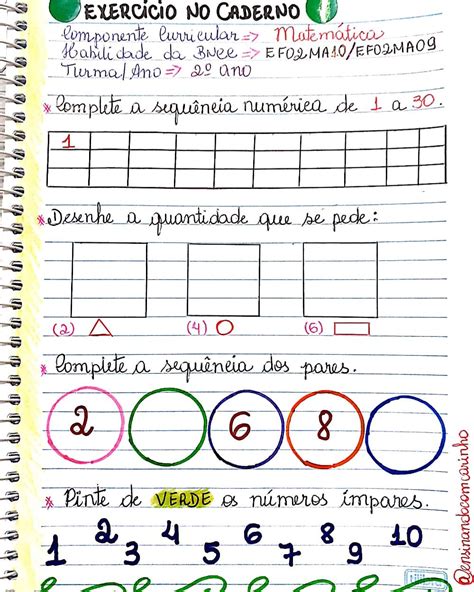 EXERCÍCIO NO CADERNO
Componente Curricular => Matemática
Habilidade da BNCC => EF02MA10/EF02MA09
Turma/Ano => 2º ano
* Complete a sequência numérica de 1 a 30.
1
* Desenhe a quantidade que se pede:
(2) (4) (6)
* Complete a sequência dos pares.
2 6 8
* Pinte de VERDE os números ímpares.
1 2 3 4 5 6 7 8 9 10
@ensinandocommarinho